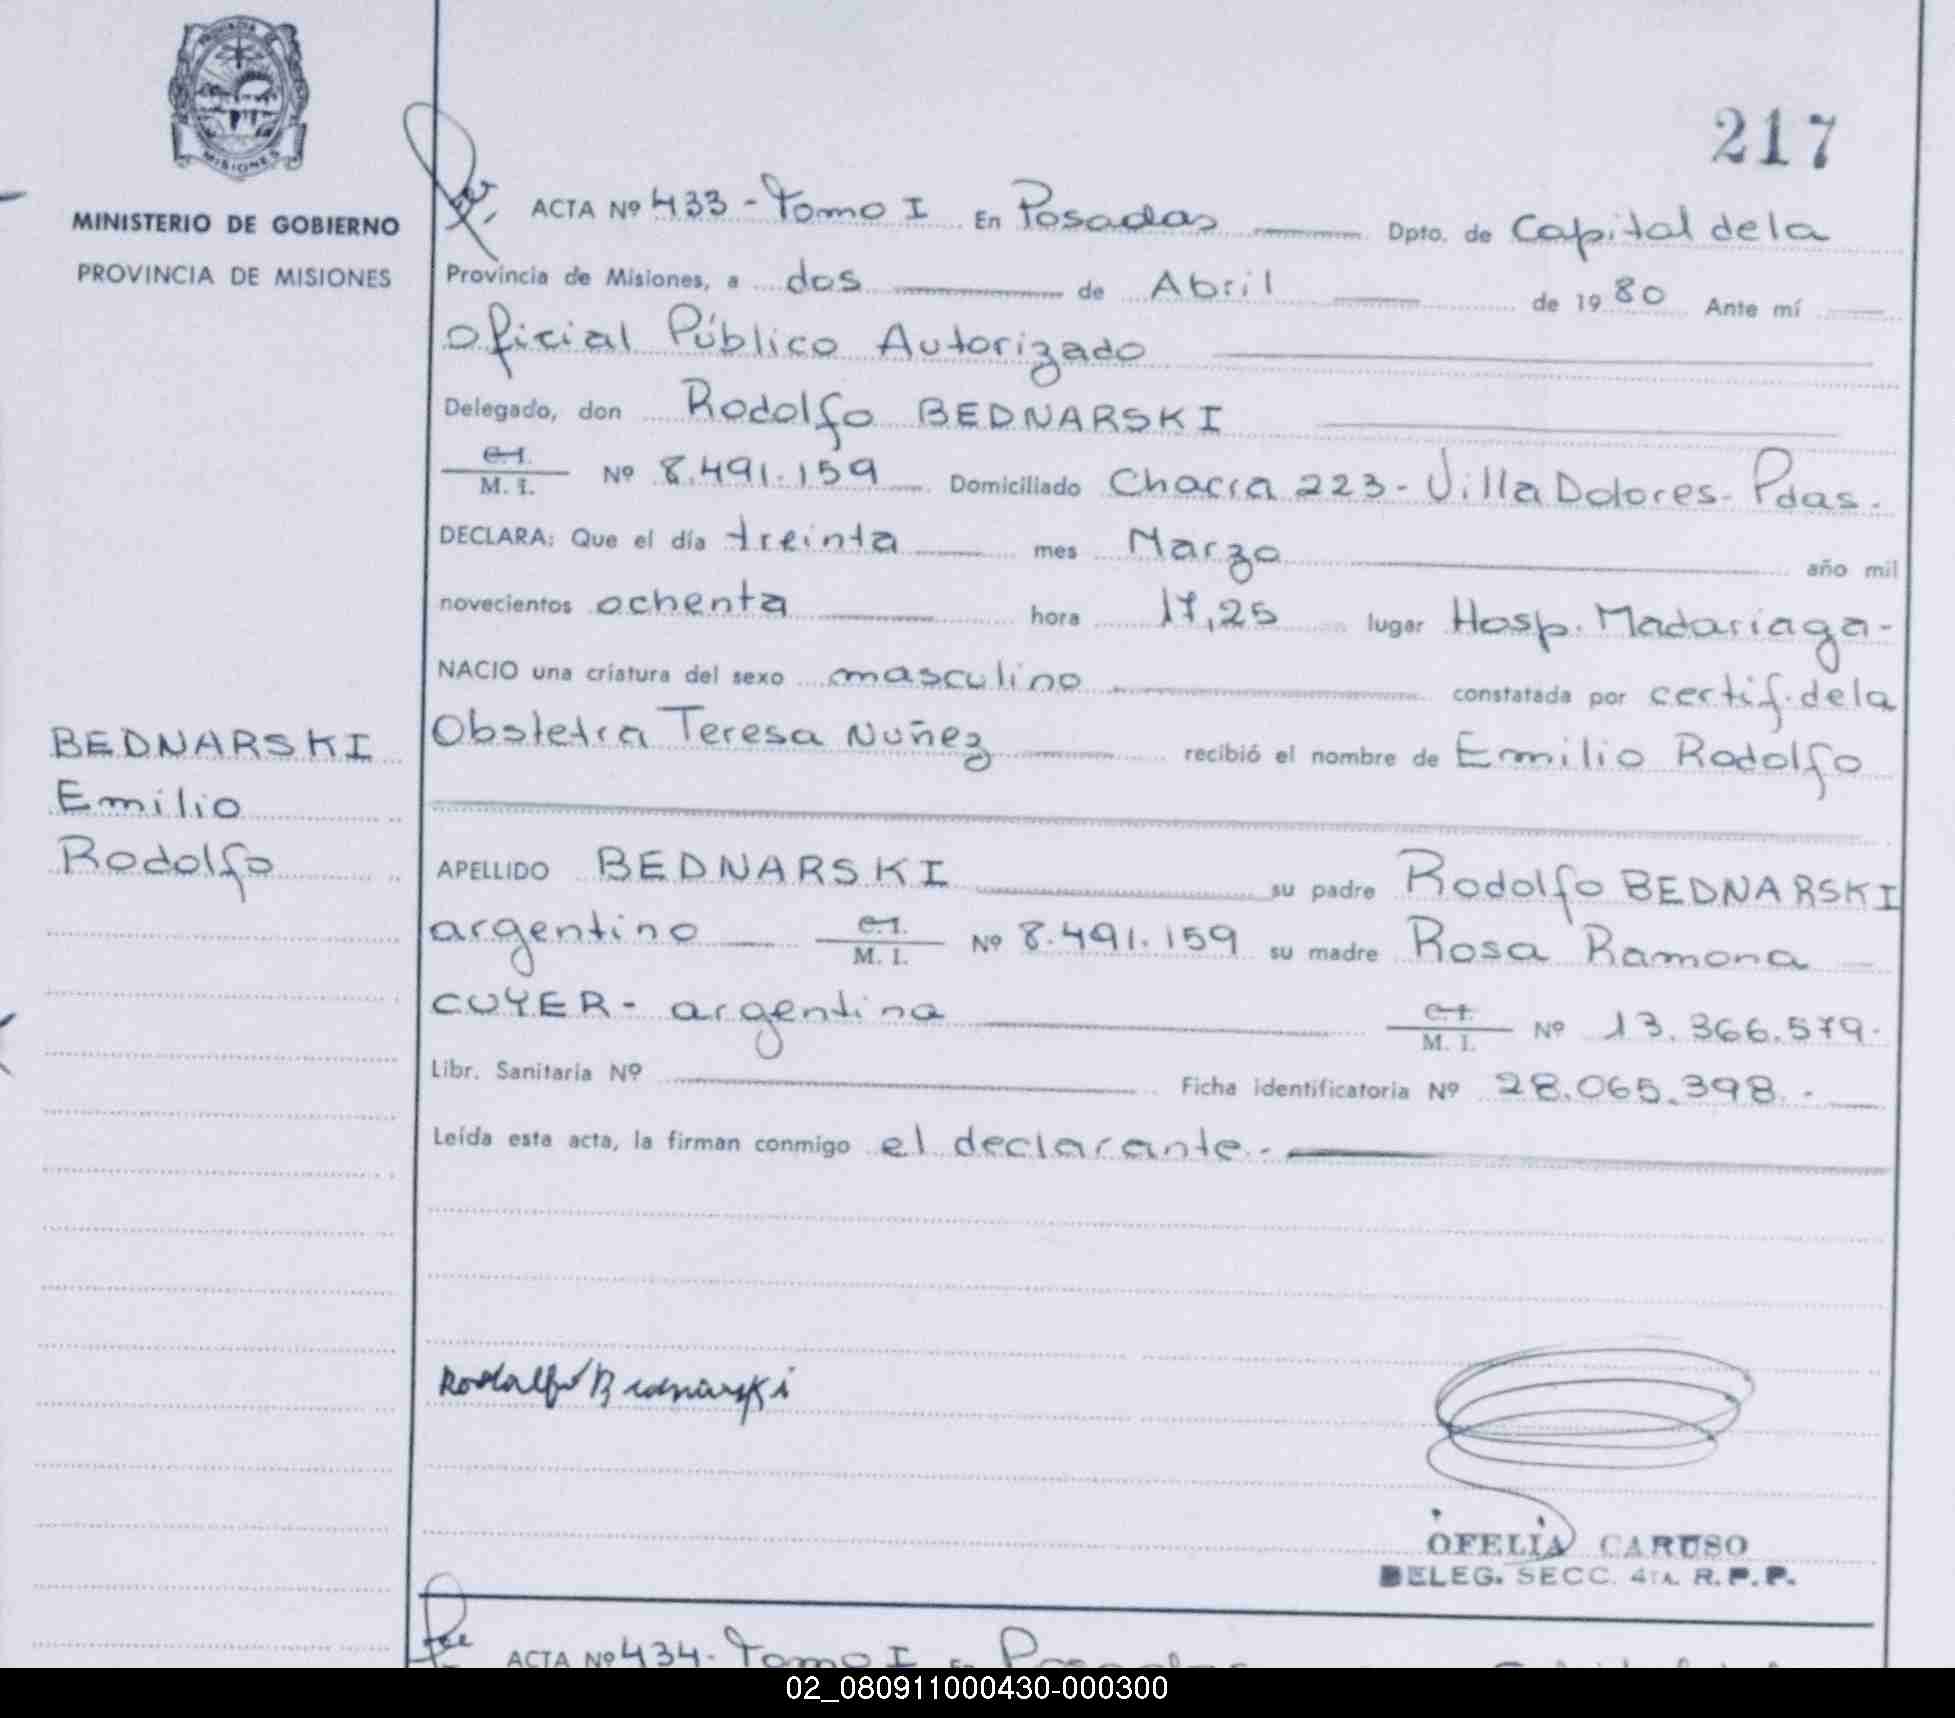 PROVINCIA DE
MISIONES
MINISTERIO DE GOBIERNO
PROVINCIA DE MISIONES
217
ACTA Nº 433 - Tomo I En Posadas Dpto. de Capital de la
Provincia de Misiones, a dos de Abril de 1980 Ante mí
Oficial Público Autorizado
Delegado, don Rodolfo BEDNARSKI
C.I.
M. I. Nº 8.491.159 Domiciliado Chacra 223 - Villa Dolores - Pdas.
DECLARA: Que el día treinta mes Marzo año mil
novecientos ochenta hora 17,25 lugar Hosp. Madariaga -
NACIO una criatura del sexo masculino constatada por certif. de la
Obstetra Teresa Nuñez recibió el nombre de Emilio Rodolfo
BEDNARSKI
Emilio
Rodolfo
APELLIDO BEDNARSKI su padre Rodolfo BEDNARSKI
argentino C.I. M. I. Nº 8.491.159 su madre Rosa Ramona
CUYER - argentina C.I. M. I. Nº 13.366.579.
Libr. Sanitaria Nº Ficha identificatoria Nº 28.065.398. -
Leída esta acta, la firman conmigo el declarante. -
Rodolfo Bednarski
OFELIA CARUSO
DELEG. SECC. 4TA. R.P.P.
ACTA Nº 434 - Tomo I En Posadas
02_080911000430-000300